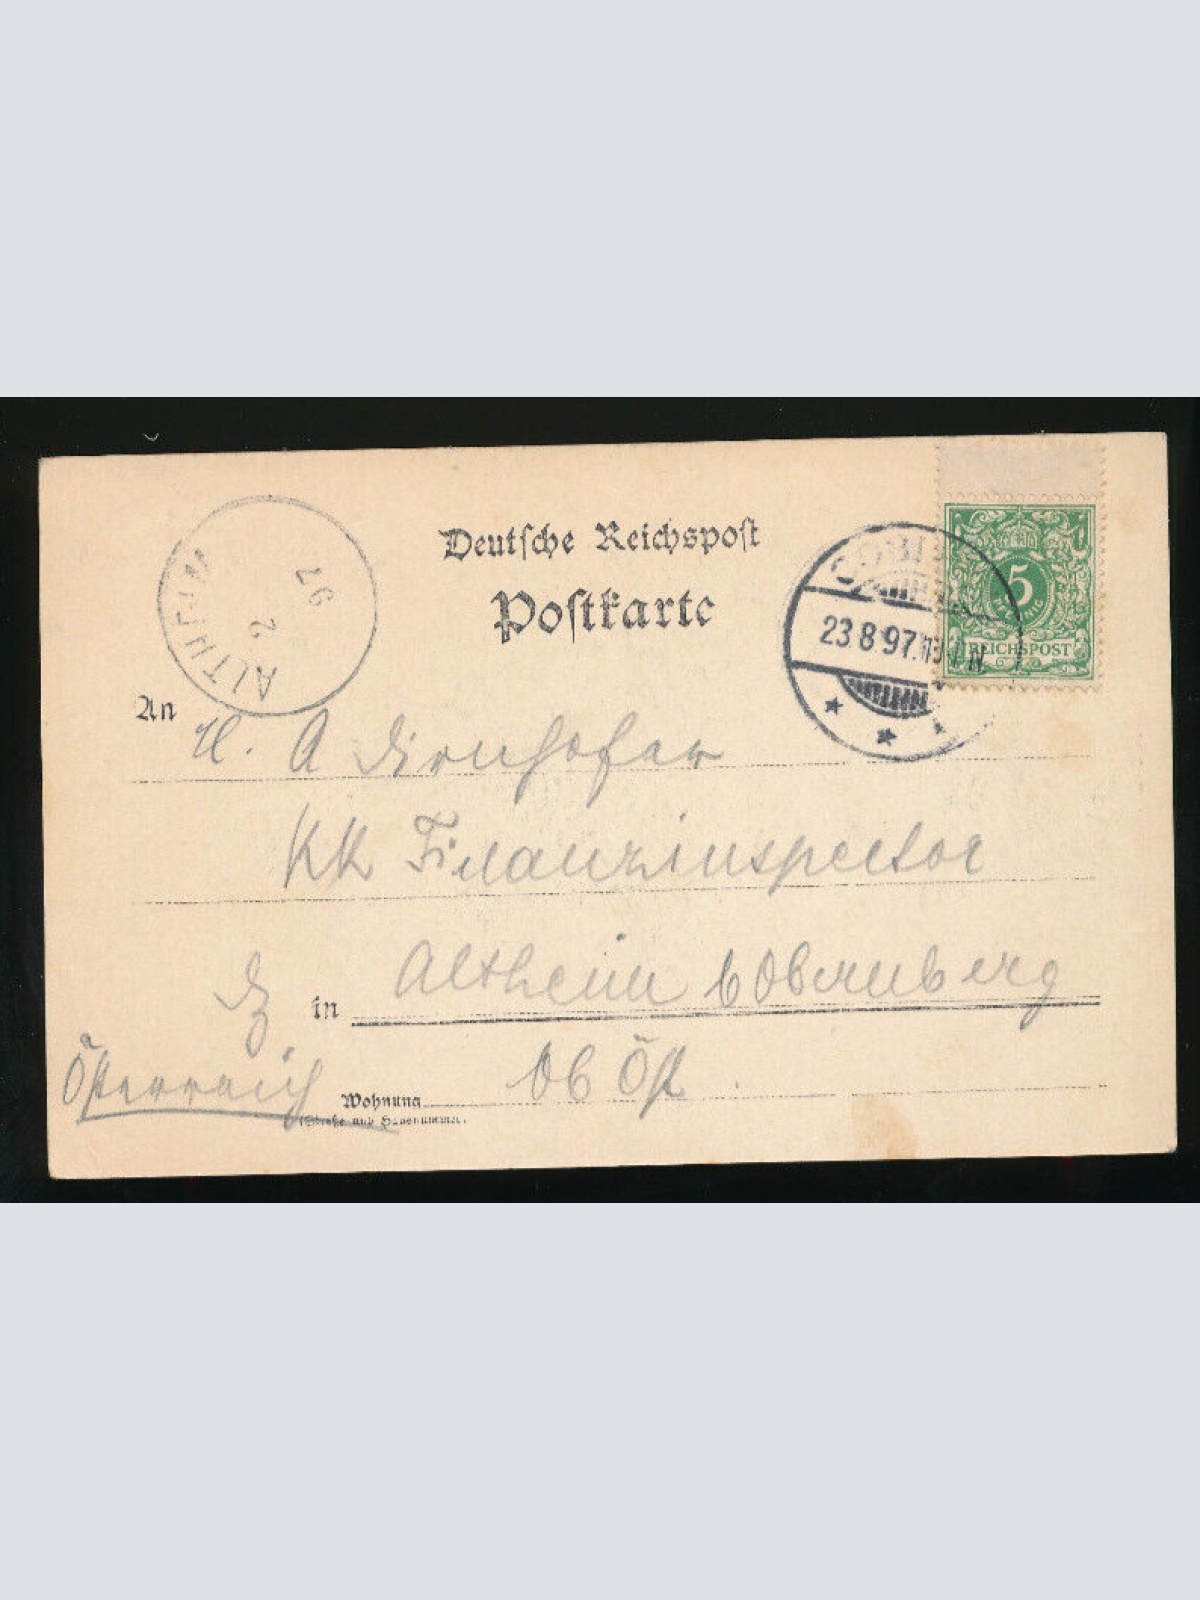 Deutsche Reichspost
Postkarte
ALTHEIM
2
97
23 8 97. N
5
PFENNIG
REICHSPOST
An H. A Dirnhofer
KK Finanzinspector
in Altheim b Obernberg
Österreich
Wohnung Ob Öst
(Straße und Hausnummer.